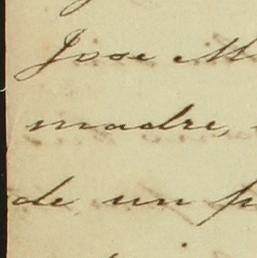 Jose M
madre,
de un p